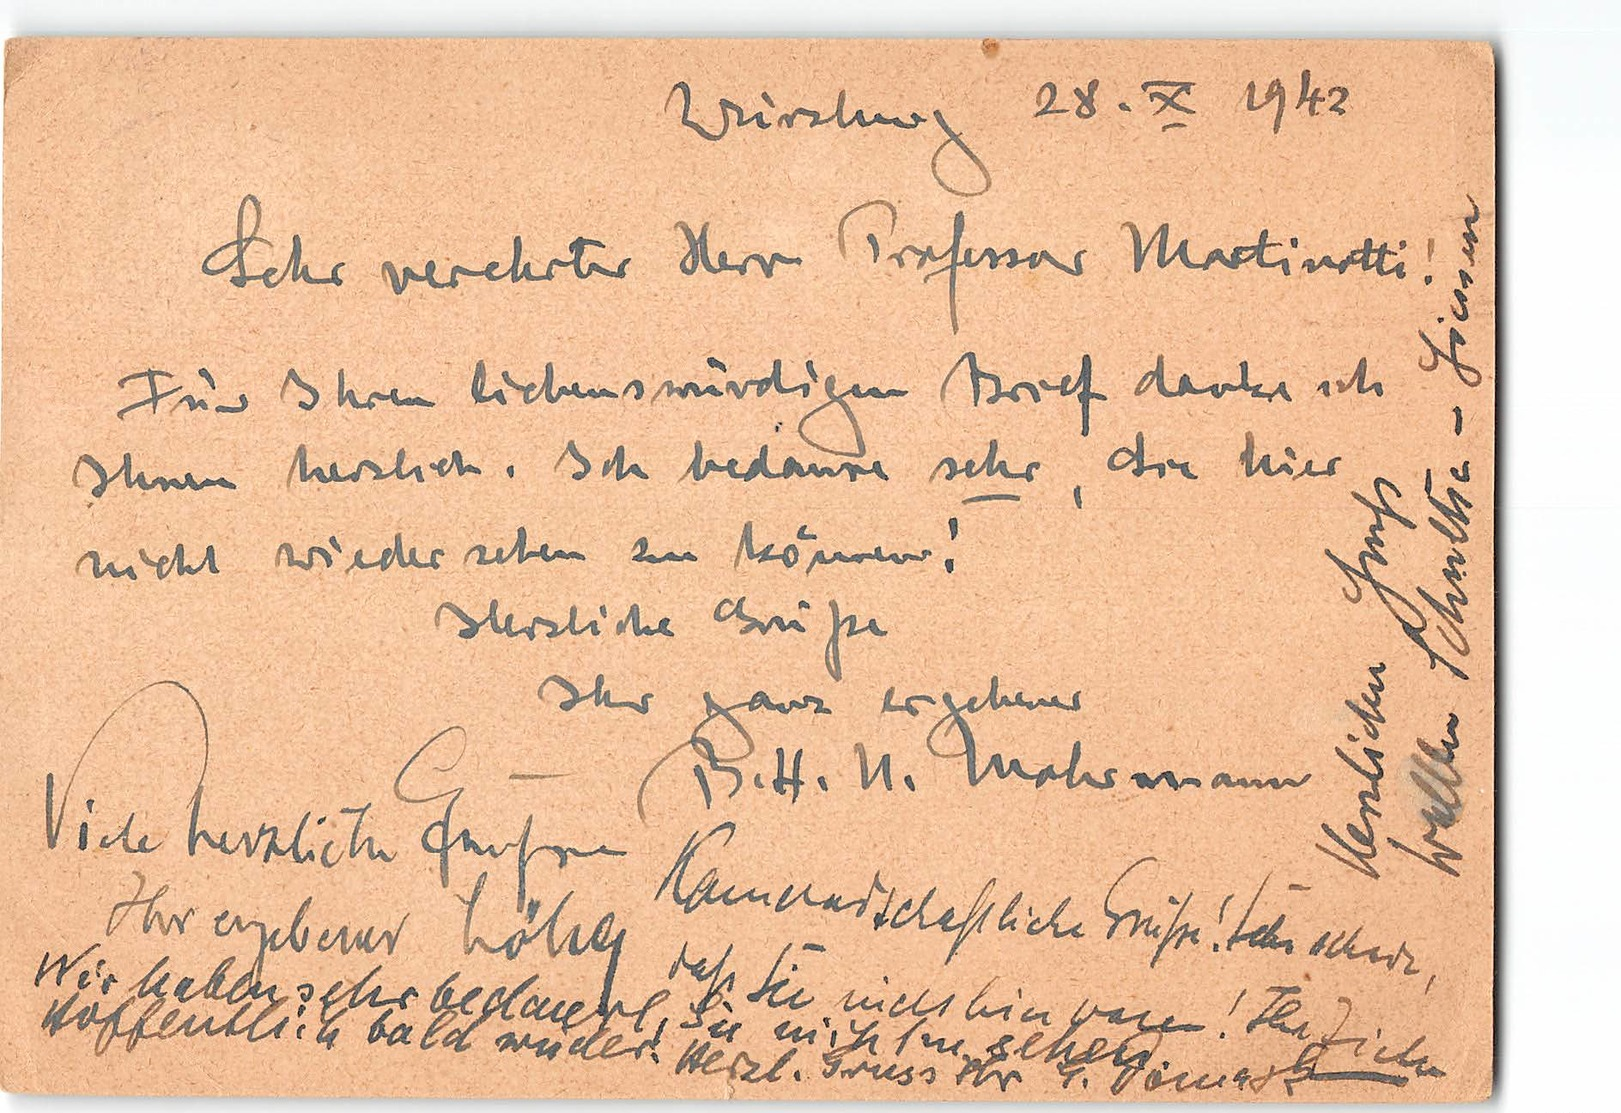 Würzburg 28. X 1942
Sehr verehrter Herr Professor Martinotti!
Für Ihren liebenswürdigen Brief danke ich
Ihnen herzlich. Ich bedaure sehr, Sie hier
nicht wiedersehen zu können!
Herzliche Grüße
Ihr ganz ergebener
B.H.N. Mohrmann
Viele herzliche Grüsse
Ihr ergebener
Kameradschaftliche Grüße! Sehr schade,
daß Sie nicht hier waren! Ihr
Wir haben sehr bedauert, Sie nicht zu sehen.
Hoffentlich bald wieder! Herzl. Gruss Ihr
Herzlichen Gruß